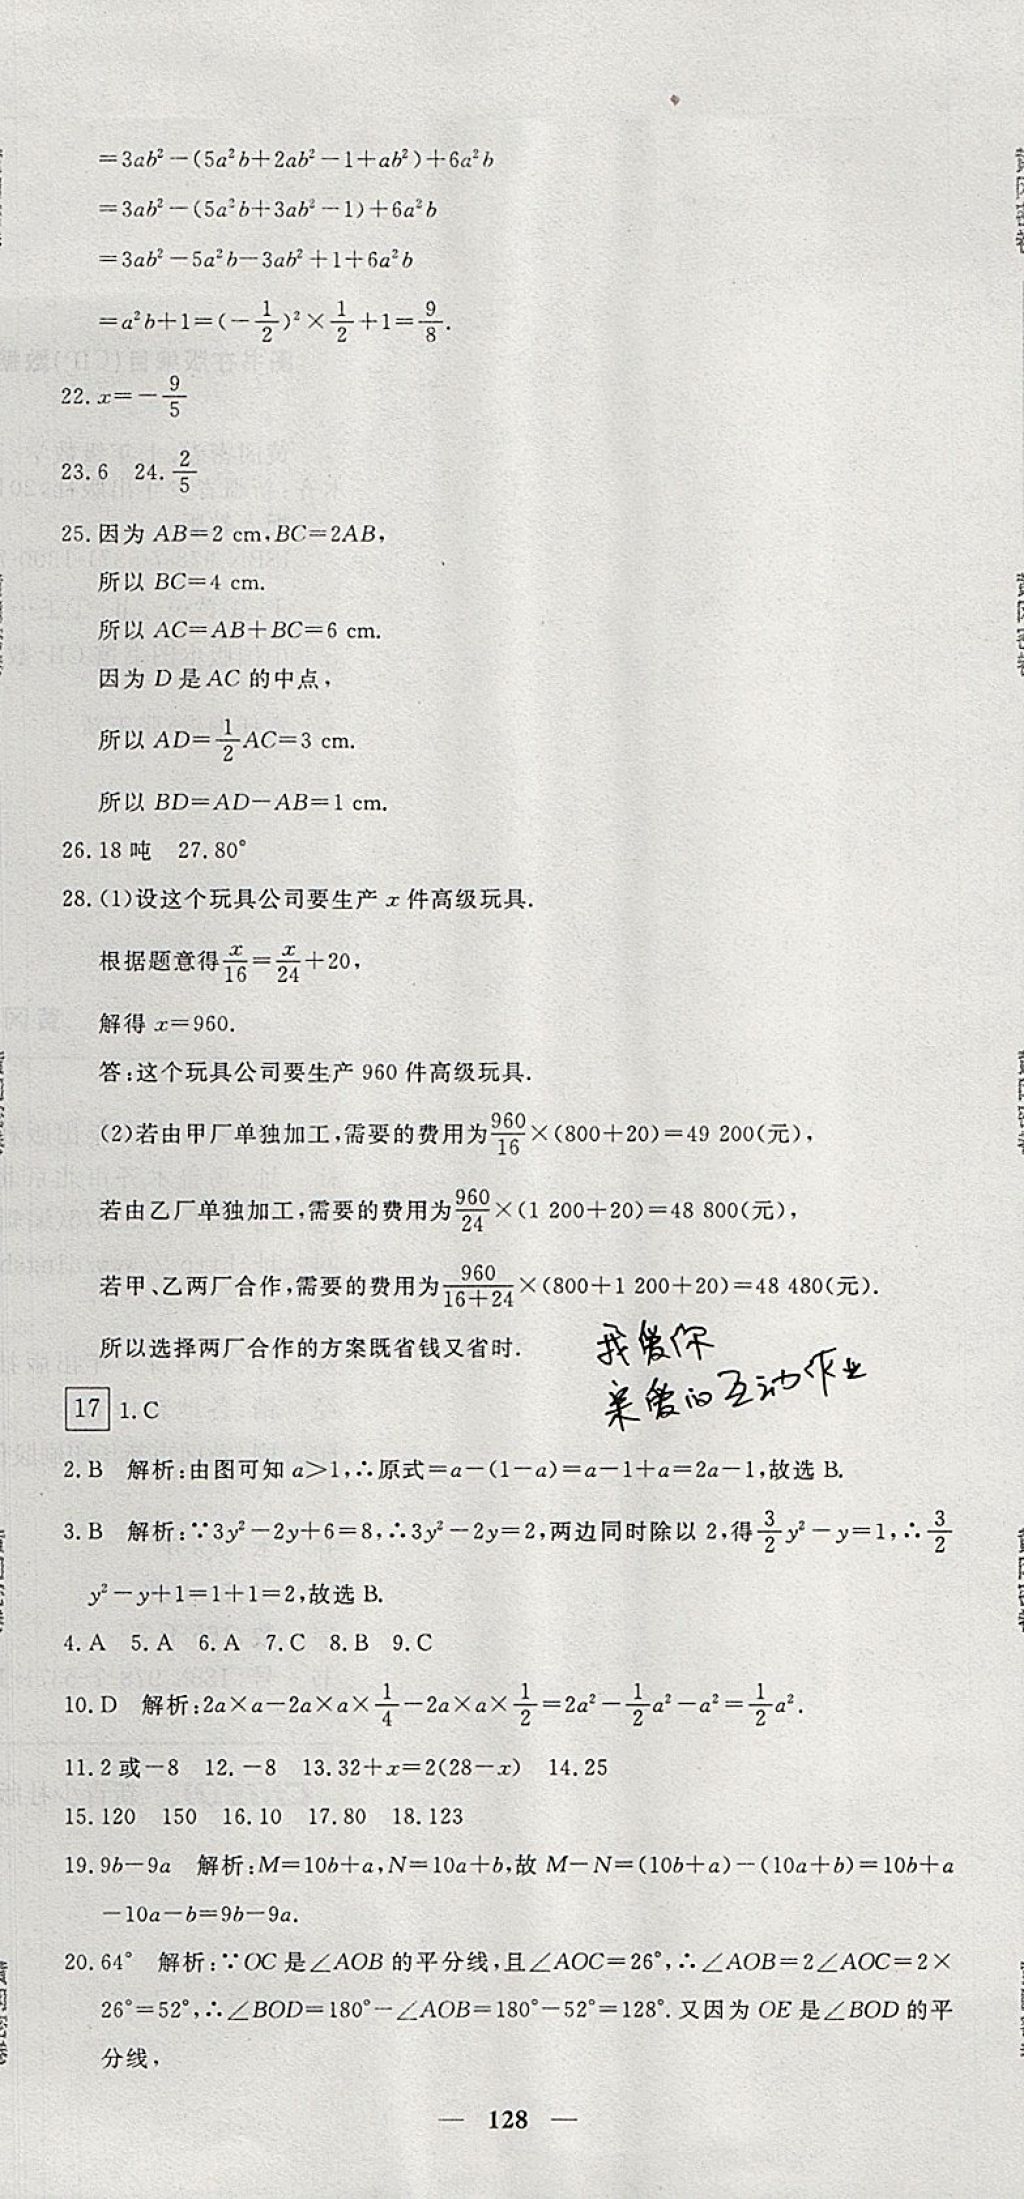 =3ab²-(5a²b+2ab²-1+ab²)+6a²b
=3ab²-(5a²b+3ab²-1)+6a²b
=3ab²-5a²b-3ab²+1+6a²b
=a²b+1=(-1/2)²×1/2+1=9/8.
22.x=-9/5
23.6 24.2/5
25.因为 AB=2 cm,BC=2AB,
所以 BC=4 cm.
所以 AC=AB+BC=6 cm.
因为 D 是 AC 的中点,
所以 AD=1/2AC=3 cm.
所以 BD=AD-AB=1 cm.
26.18 吨 27.80°
28.(1)设这个玩具公司要生产 x 件高级玩具.
根据题意得 x/16=x/24+20,
解得 x=960.
答:这个玩具公司要生产 960 件高级玩具.
(2)若由甲厂单独加工,需要的费用为 960/16×(800+20)=49 200(元),
若由乙厂单独加工,需要的费用为 960/24×(1 200+20)=48 800(元),
若甲、乙两厂合作,需要的费用为 960/16+24×(800+1 200+20)=48 480(元).
所以选择两厂合作的方案既省钱又省时.
我爱你
亲爱的互动作业
17 1.C
2.B 解析:由图可知 a>1,∴原式=a-(1-a)=a-1+a=2a-1,故选 B.
3.B 解析:∵3y²-2y+6=8,∴3y²-2y=2,两边同时除以 2,得3/2y²-y=1,∴3/2
y²-y+1=1+1=2,故选 B.
4.A 5.A 6.A 7.C 8.B 9.C
10.D 解析:2a×a-2a×a×1/4-2a×a×1/2=2a²-1/2a²-a²=1/2a².
11.2 或-8 12.-8 13.32+x=2(28-x) 14.25
15.120 150 16.10 17.80 18.123
19.9b-9a 解析:M=10b+a,N=10a+b,故 M-N=(10b+a)-(10a+b)=10b+a
-10a-b=9b-9a.
20.64° 解析:∵OC 是∠AOB 的平分线,且∠AOC=26°,∴∠AOB=2∠AOC=2×
26°=52°,∴∠BOD=180°-∠AOB=180°-52°=128°.又因为 OE 是∠BOD 的平
分线,
— 128 —